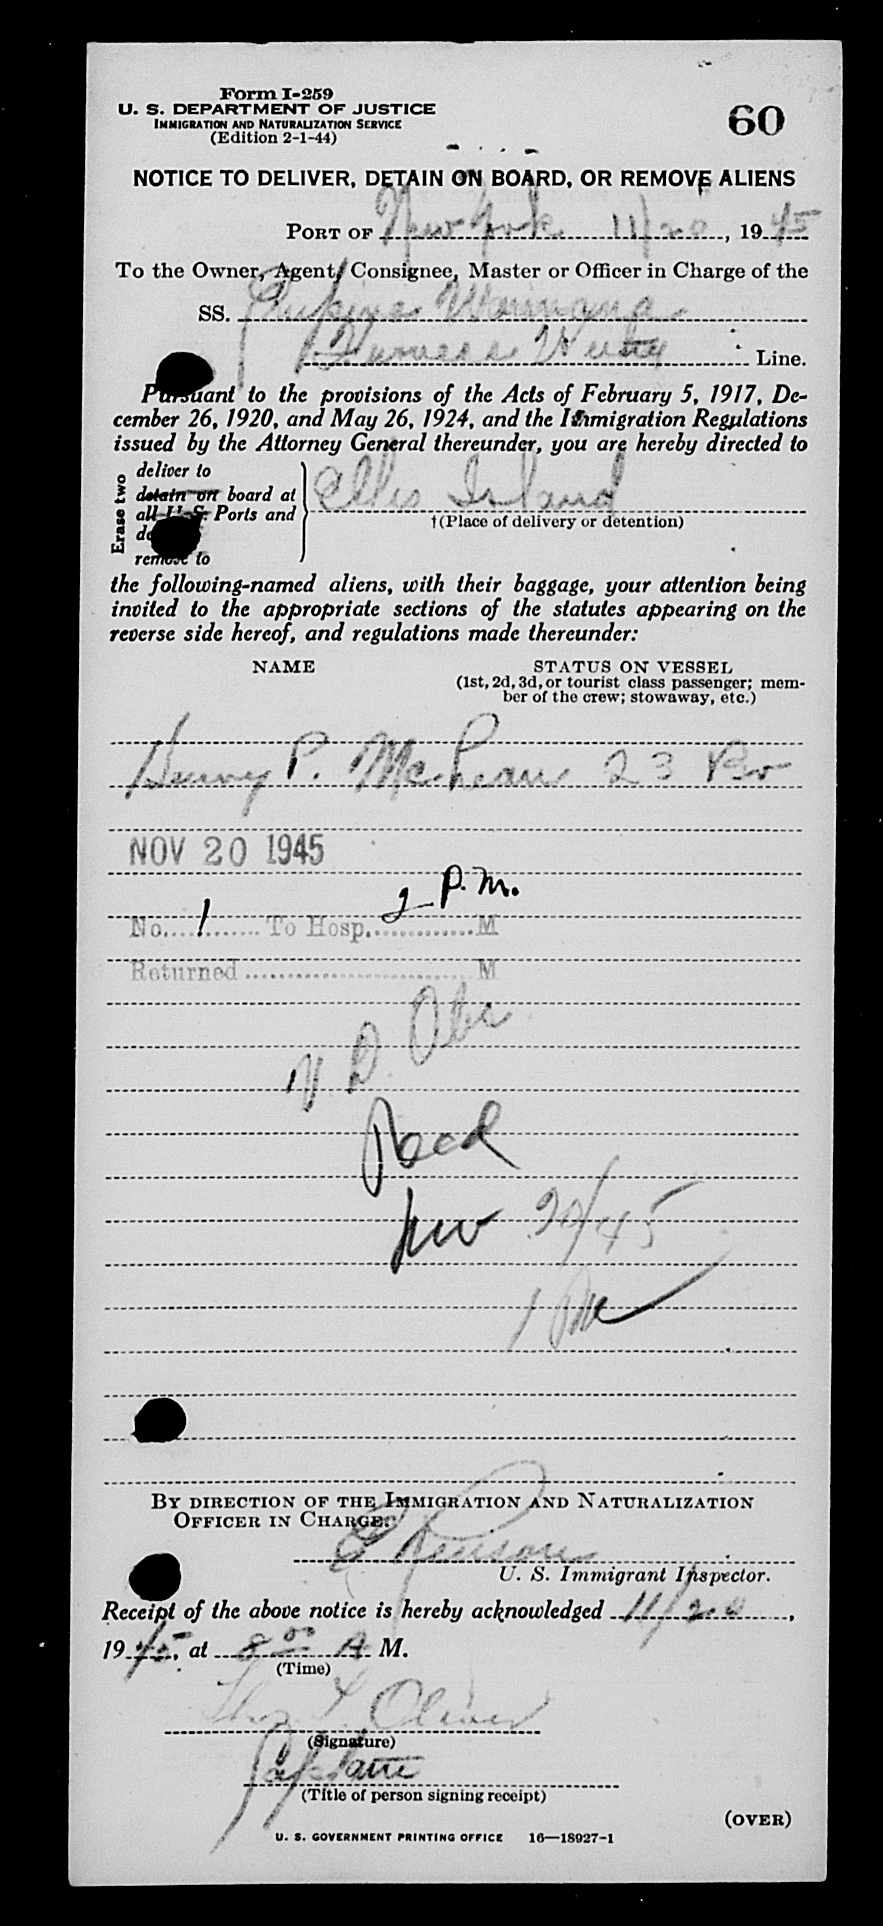 Form I-259
U. S. DEPARTMENT OF JUSTICE
IMMIGRATION AND NATURALIZATION SERVICE
(Edition 2-1-44)
60
NOTICE TO DELIVER, DETAIN ON BOARD, OR REMOVE ALIENS
PORT OF New York 11/20, 1945
To the Owner, Agent, Consignee, Master or Officer in Charge of the
SS.
Line.
Pursuant to the provisions of the Acts of February 5, 1917, De-
cember 26, 1920, and May 26, 1924, and the Immigration Regulations
issued by the Attorney General thereunder, you are hereby directed to
Erase two
deliver to
detain on board at
all U. S. Ports and
remove to
Ellis Island
†(Place of delivery or detention)
the following-named aliens, with their baggage, your attention being
invited to the appropriate sections of the statutes appearing on the
reverse side hereof, and regulations made thereunder:
NAME STATUS ON VESSEL
(1st, 2d, 3d, or tourist class passenger; mem-
ber of the crew; stowaway, etc.)
P. McLean 23 Br
NOV 20 1945
No. 1 To Hosp. 2 P.M. M
Returned M
Recd
Nov 20/45
1 PM
BY DIRECTION OF THE IMMIGRATION AND NATURALIZATION
OFFICER IN CHARGE:
U. S. Immigrant Inspector.
Receipt of the above notice is hereby acknowledged 11/20,
1945, at 8 00 A M.
(Time)
Oliver
(Signature)
Captain
(Title of person signing receipt)
(OVER)
U. S. GOVERNMENT PRINTING OFFICE 16—18927-1